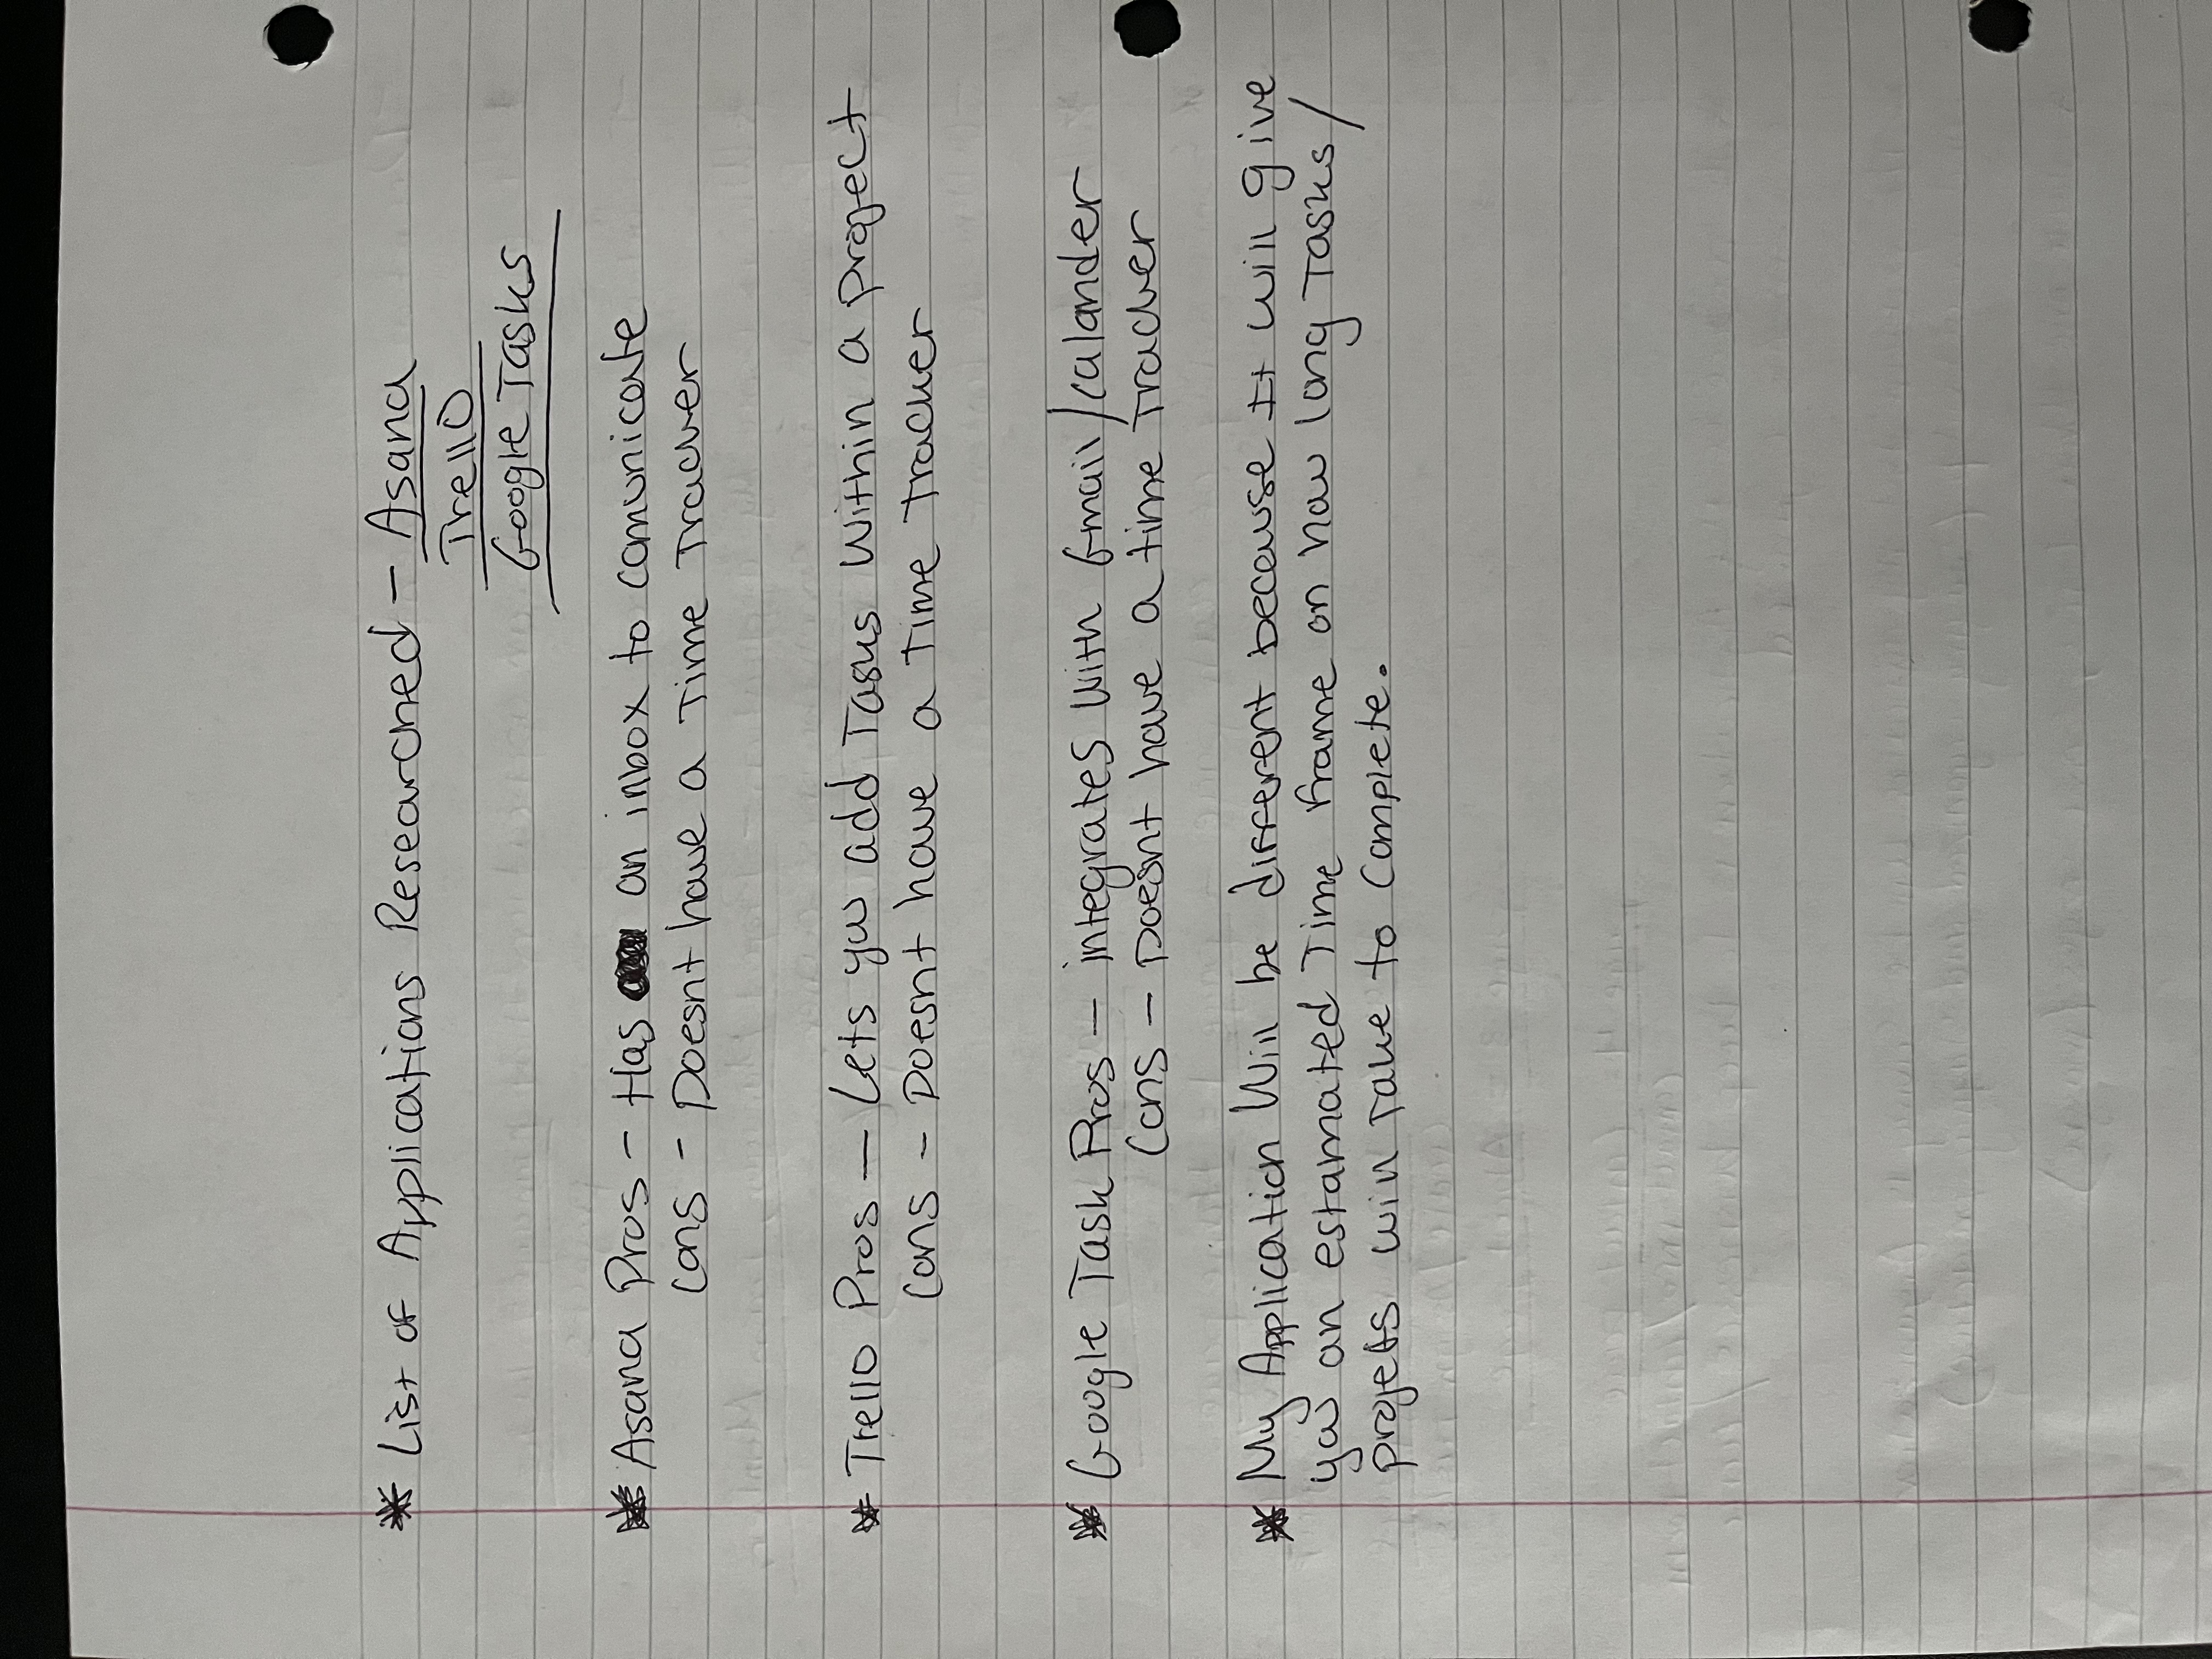 * List of Applications Researched - Asana
Trello
Google Tasks
* Asana Pros - Has an inbox to comunicate
Cons - Doesnt have a Time Tracker
* Trello Pros - Lets you add Tasks Within a project
Cons - Doesnt have a Time Tracker
* Google Task Pros - integrates With Gmail/calander
Cons - Doesnt have a time Tracker
* My Application Will be different because It will give
you an estamated Time frame on how long Tasks/
projets will Take to Complete.